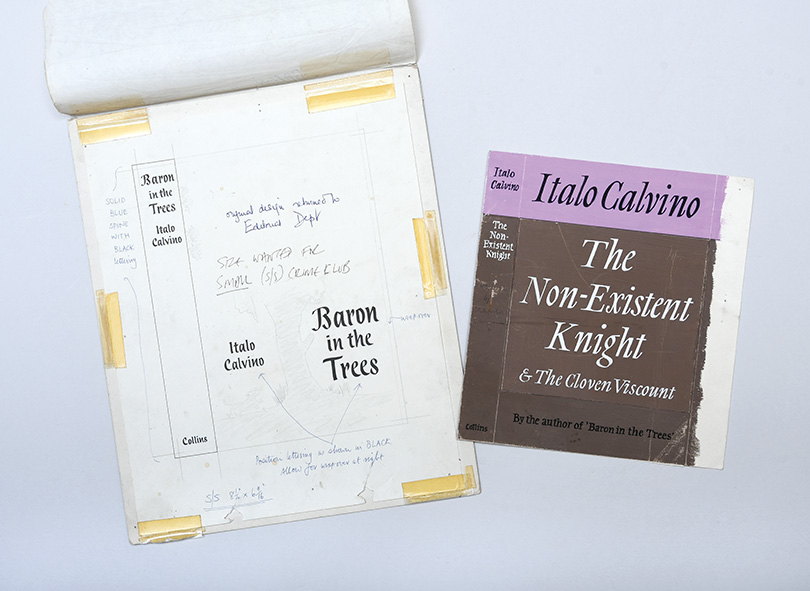 Baron
in the
Trees
Italo
Calvino
Collins
SOLID
BLUE
SPINE
WITH
BLACK
lettering
original design returned to
Editorial Dept
SIZE WANTED FOR
SMALL (S/S) CRIME CLUB
Italo
Calvino
Baron
in the
Trees
wrapover
Position lettering as shown in BLACK
allow for wrapover at right
S/S
Italo
Calvino
The
Non-
Existent
Knight
Collins
Italo Calvino
The
Non-Existent
Knight
& The Cloven Viscount
By the author of 'Baron in the Trees'